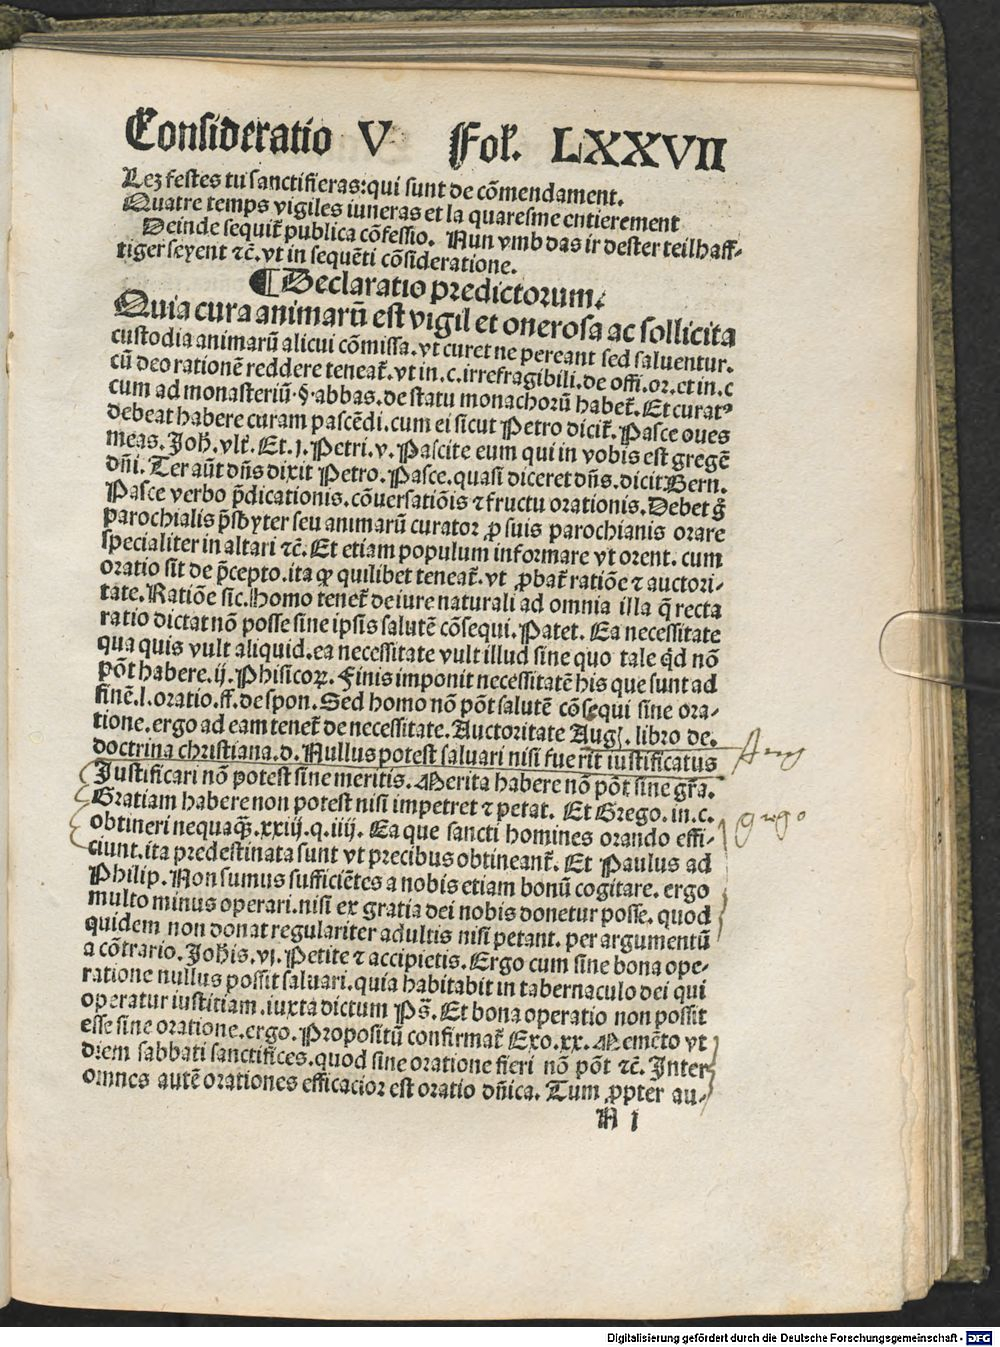 Consideratio V Fol. LXXVII
Lez festes tu sanctifieras: qui sunt de cōmendament.
Quatre temps vigiles iuneras et la quaresme entierement
Deinde sequit᷑ publica cōfessio. Nun vmb das ir dester teilhaff-
tiger seyent ⁊c̄. vt in sequēti cōsideratione.
¶ Declaratio predictorum.
Quia cura animarū est vigil et onerosa ac sollicita
custodia animarū alicui cōmissa. vt curet ne pereant sed saluentur.
cū deo rationē reddere teneat᷑. vt in. c. irrefragibili. de offi. or. et in. c
cum ad monasteriū. §. abbas. de statu monachorū habet᷑. Et curatꝰ
debeat habere curam pascēdi. cum ei sicut Petro dicit᷑. Pasce oues
meas. Joh̄. vlt᷑. Et. j. Petri. v. Pascite eum qui in vobis est gregē
dn̄i. Ter aūt dn̄s dixit Petro. Pasce. quasi diceret dn̄s. dicit Bern.
Pasce verbo p̄dicationis. cōuersatiōis ⁊ fructu orationis. Debet g̊
parochialis p̄sbyter seu animarū curator ꝓ suis parochianis orare
specialiter in altari ⁊c̄. Et etiam populum informare vt orent. cum
oratio sit de p̄cepto. ita ꝙ quilibet teneat᷑. vt ꝓbat᷑ ratiōe ⁊ auctori-
tate. Ratiōe sic. Homo tenet᷑ de iure naturali ad omnia illa q̄ recta
ratio dictat nō posse sine ipsis salutē cōsequi. Patet. Ea necessitate
qua quis vult aliquid. ea necessitate vult illud sine quo tale qd̄ nō
pōt habere. ij. Phisicoꝝ. Finis imponit necessitatē his que sunt ad
finē. l. oratio. ff. de spon. Sed homo nō pōt salutē cōsequi sine ora-
tione. ergo ad eam tenet᷑ de necessitate. Auctoritate Aug. libro de.
doctrina christiana. d. Nullus potest saluari nisi fuerit iustificatus
Aug
Justificari nō potest sine meritis. Merita habere nō pōt sine gr̄a.
Gratiam habere non potest nisi impetret ⁊ petat. Et Grego. in. c.
grego
obtineri nequaq̄. xxiij. q. iiij. Ea que sancti homines orando effi-
ciunt. ita predestinata sunt vt precibus obtineant᷑. Et Paulus ad
Philip. Non sumus sufficiētes a nobis etiam bonū cogitare. ergo
multo minus operari. nisi ex gratia dei nobis donetur posse. quod
quidem non donat regulariter adultis nisi petant. per argumentū
a cōtrario. Joh̄is. vj. Petite ⁊ accipietis. Ergo cum sine bona ope-
ratione nullus possit saluari. quia habitabit in tabernaculo dei qui
operatur iustitiam. iuxta dictum Ps̄. Et bona operatio non possit
esse sine oratione. ergo. Propositū confirmat᷑ Exo. xx. Memēto vt
diem sabbati sanctifices. quod sine oratione fieri nō pōt ⁊c̄. Inter
omnes autē orationes efficacior est oratio dn̄ica. Tum ꝓpter au-
N j
Digitalisierung gefördert durch die Deutsche Forschungsgemeinschaft - DFG